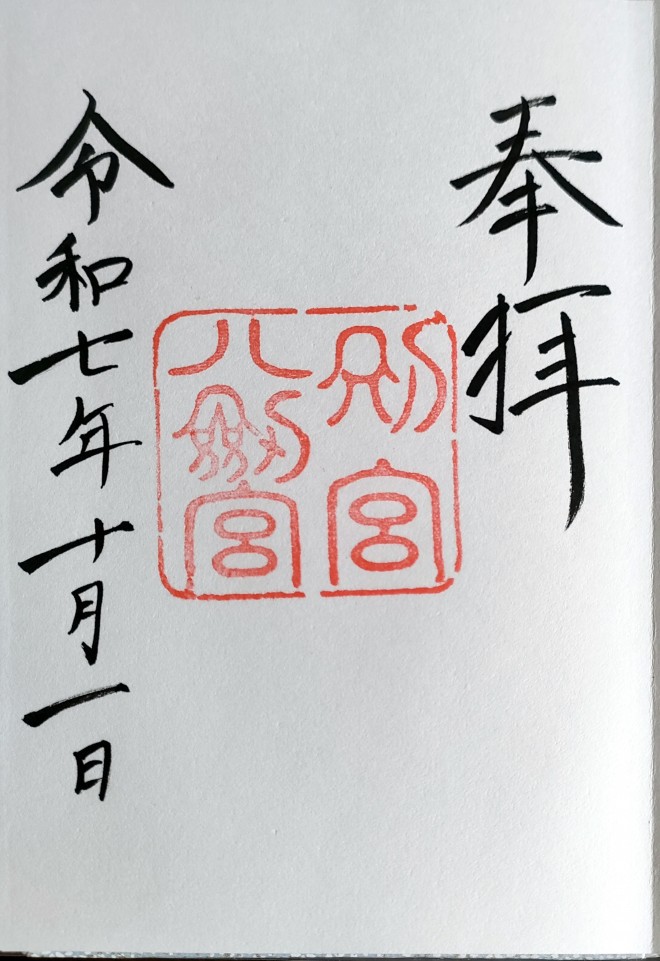 奉拝
別宮
八剱宮
令和七年十月一日